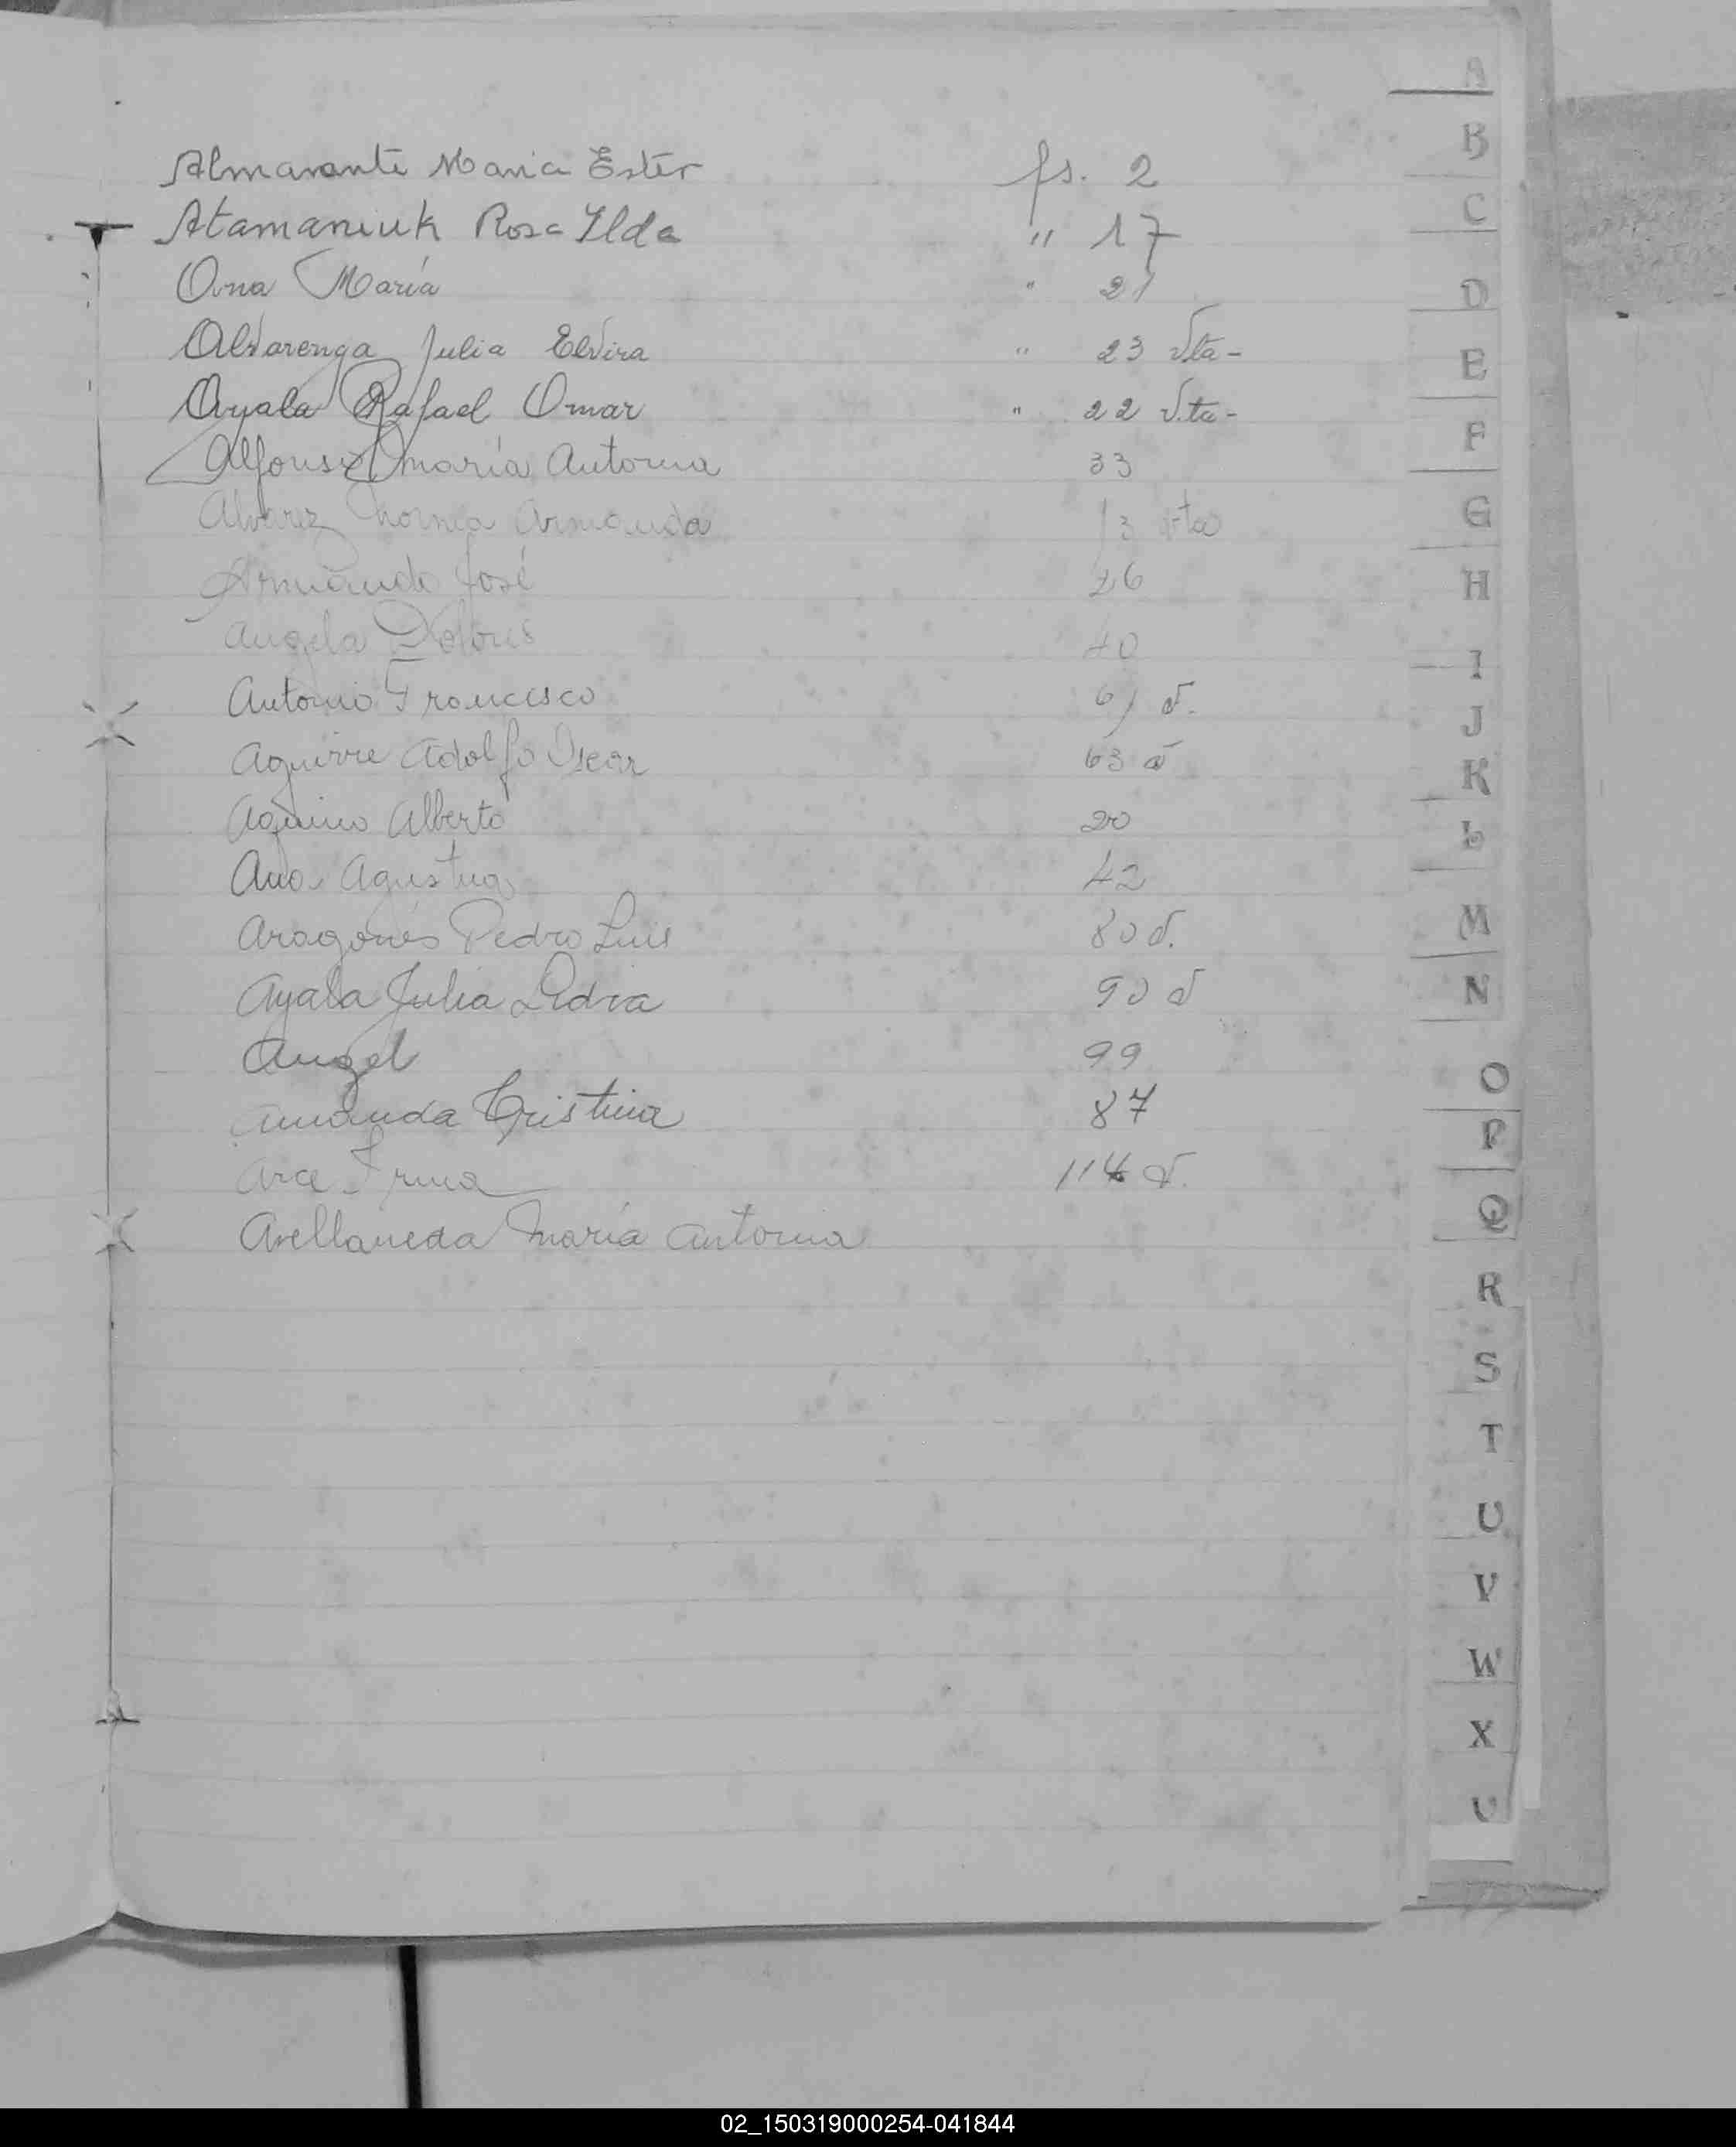 A
Almarante Maria Ester fs. 2
B
Atamaniuk Rosa Ilda " 17
C
Ana María " 21
D
Alvarenga Julia Elvira " 23 Vta-
E
Ayala Rafael Omar " 22 V.ta-
F
Alfonso María Antonia 33
Alvarez Norma Armanda 13 vta
G
Armando José 26
H
Angela Dolores 40
I
Antonio Francisco 61 v.
J
Aguirre Adolfo Oscar 63 v
K
Aquino Alberto 20
L
Ana Agustina 42
Aragonés Pedro Luis 80 v.
M
Ayala Julia Lidia 90 v
N
Angel 99
O
Amanda Cristina 87
P
Arce Irma 114 v.
Avellaneda María Antonia
Q
R
S
T
U
V
W
X
02_150319000254-041844